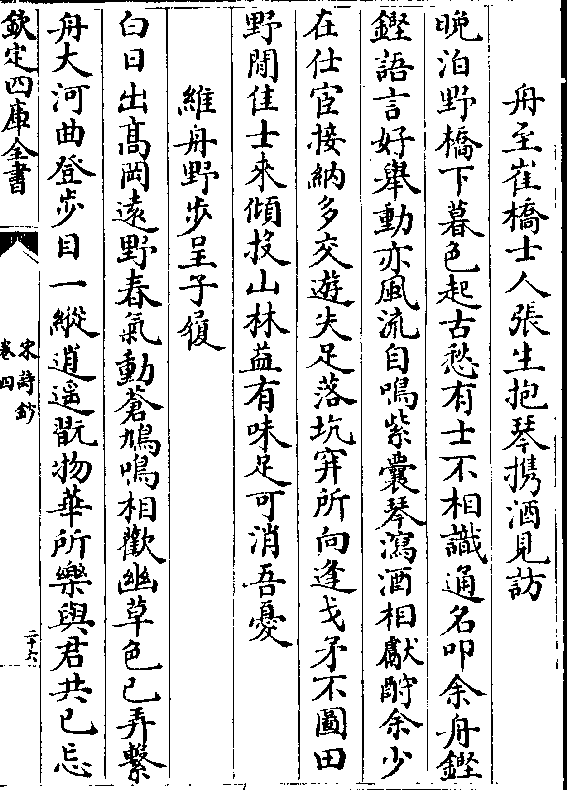 舟至崔橋士人張生抱琴携酒見訪
晩泊野橋下暮色起古愁有士不相識通名叩余舟鏗
鏗語言好舉動亦風流自鳴紫囊琴瀉酒相獻酧余少
在仕宦接納多交遊失足落坑穽所向逢戈矛不圖田
野間佳士來傾投山林益有味足可消吾憂
維舟野步呈子履
白日出高岡遠野春氣動蒼鳩鳴相歡幽草色已弄繫
舟大河曲登步目一縱逍遥翫物華所樂與君共已忘
欽定四庫全書
宋詩鈔
卷四
二十六